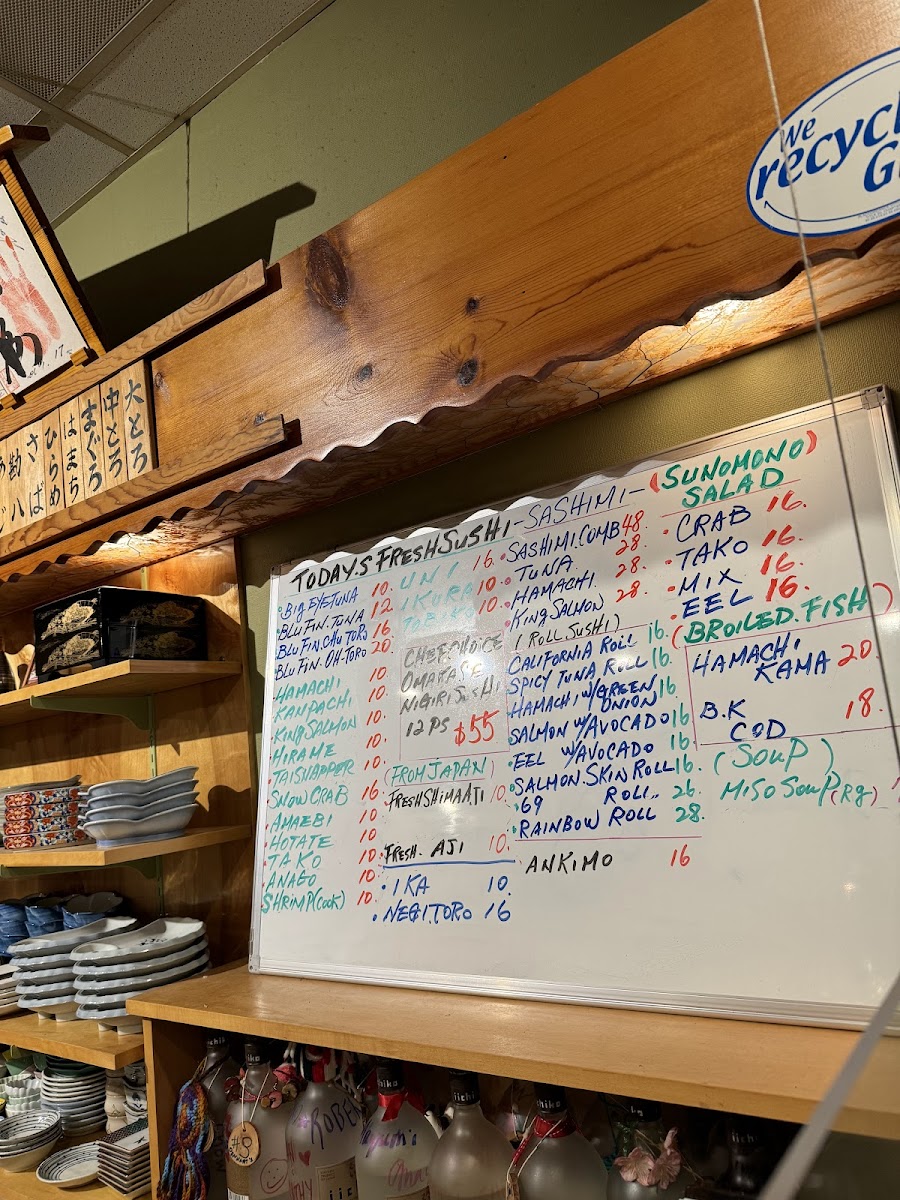 We
recycl
G
17
大とろ
中とろ
まぐろ
はまち
ひらめ
さば
勘八
TODAY.S FRESH SUSHI -SASHIMI-
BIG EYE TUNA 10.
BLU FIN. TUNA 12
BLU FIN. CHU TORO 16
BLU FIN. OH-TORO 20.
HAMACHI 10.
KANPACHI 10.
KING SALMON 10.
HIRAME 10.
TAI SNAPPER 10.
SNOW CRAB 16
AMAEBI 10.
HOTATE 10.
TAKO 10.
ANAGO 10.
SHRIMP (COOK) 10.
UNI 16.
IKURA 10.
TOBIKO 10.
CHEF CHOICE
OMAKASE
NIGIRI SUSHI
12 PS $55
(FROM JAPAN)
FRESH SHIMA AJI 10.
FRESH. AJI 10.
IKA 10.
NEGI.TORO 16
SASHIMI. COMB 48.
TUNA 28.
HAMACHI. 28.
KING SALMON 28.
(ROLL SUSHI)
CALIFORNIA ROLL 16.
SPICY TUNA ROLL 16.
HAMACHI W/GREEN
ONION 16
SALMON W/AVOCADO 16
EEL W/AVOCADO 16
SALMON. SKIN ROLL 16.
69 ROLL.. 26.
RAINBOW ROLL 28.
ANKIMO 16
(SUNOMONO)
SALAD
CRAB 16.
TAKO 16.
MIX 16.
EEL 16.
(BROILED. FISH)
HAMACHI
KAMA 20.
B.K
COD 18.
(SOUP)
MISO SOUP (Rg)
iichiko
ROBE